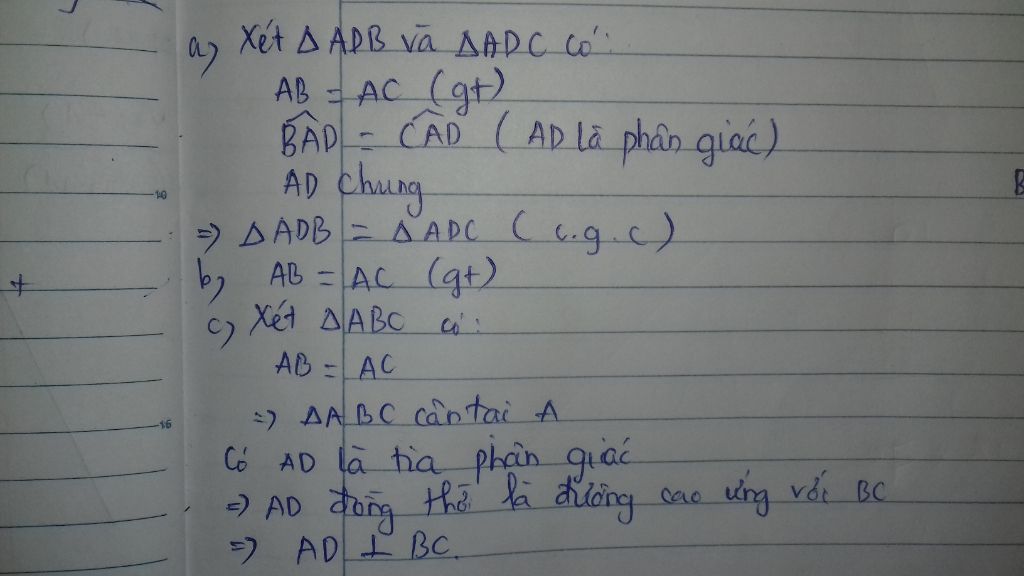 a, Xét Δ ADB và ΔADC có:
AB = AC (gt)
B̂AD = ĈAD ( AD là phân giác)
AD chung
=> Δ ADB = Δ ADC ( c.g.c)
b, AB = AC (gt)
c, Xét ΔABC có:
AB = AC
=> ΔABC cân tại A
Có AD là tia phân giác
=> AD đồng thời là đường cao ứng với BC
=> AD ⊥ BC.
B
+
10
15